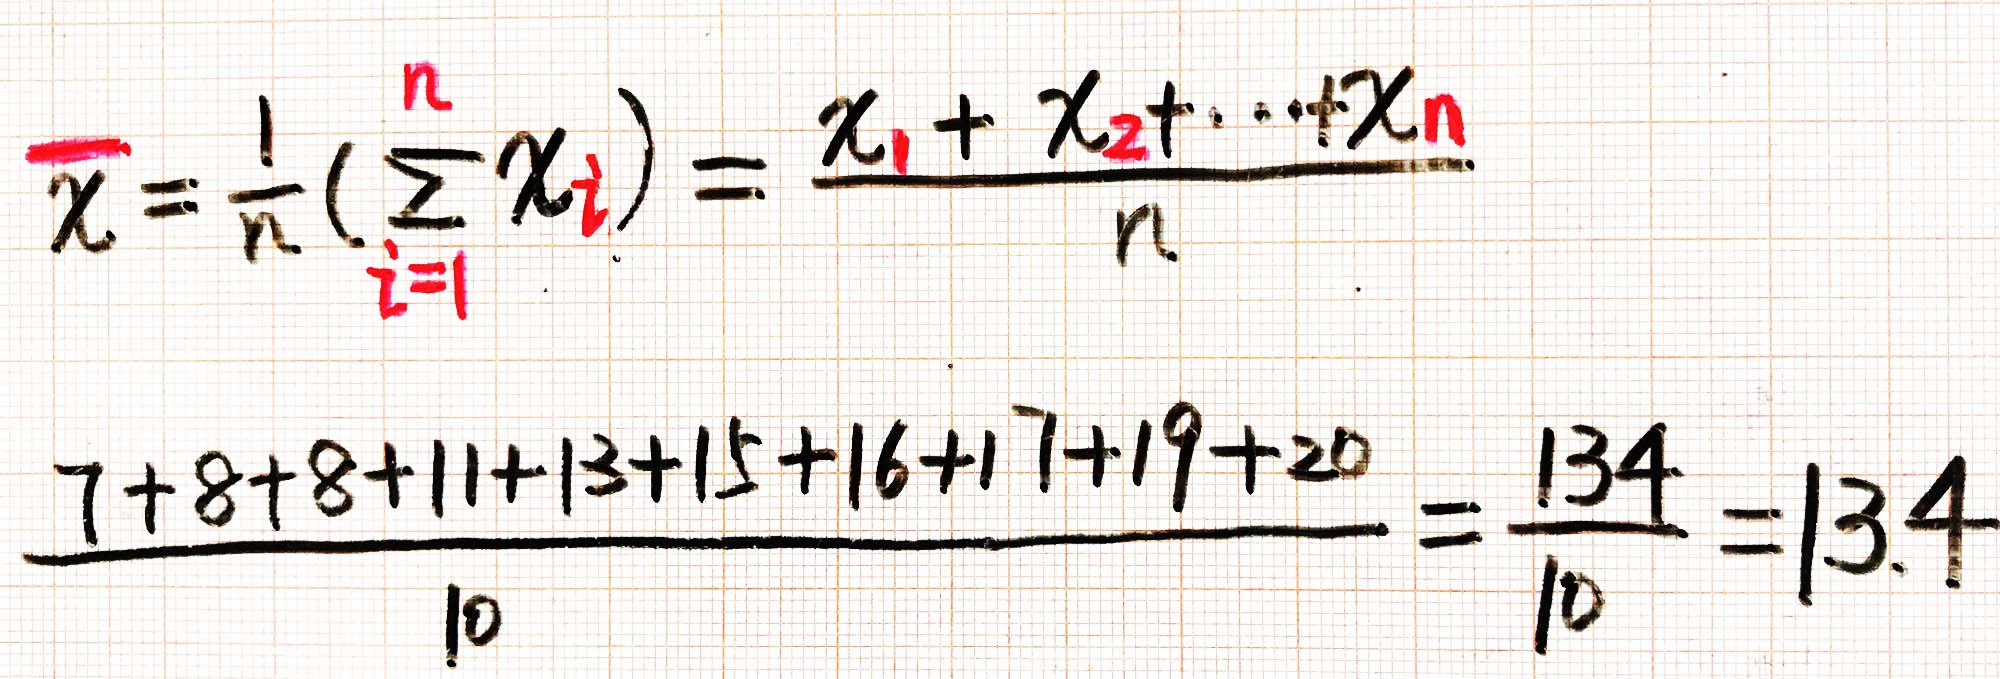 x̄ = 1/n (∑_{i=1}^{n} x_i) = (x_1 + x_2 + ··· + x_n)/n
(7+8+8+11+13+15+16+17+19+20)/10 = 134/10 = 13.4